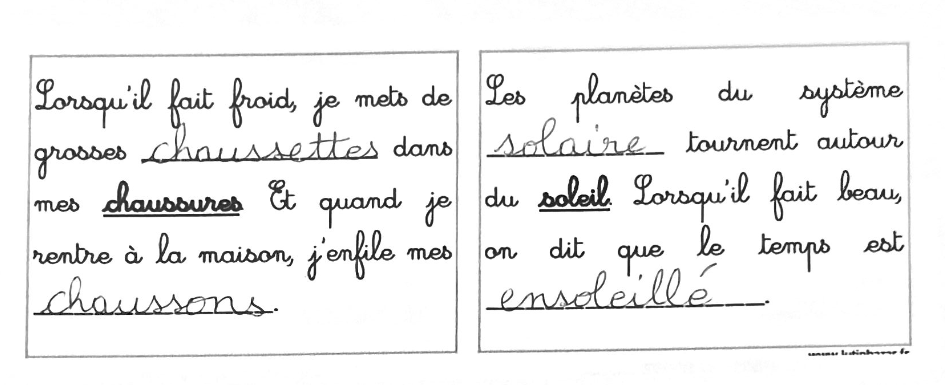 Lorsqu'il fait froid, je mets de
grosses chaussettes dans
mes chaussures. Et quand je
rentre à la maison, j'enfile mes
chaussons.
Les planètes du système
solaire tournent autour
du soleil. Lorsqu'il fait beau,
on dit que le temps est
ensoleillé.
www.lutinbazar.fr